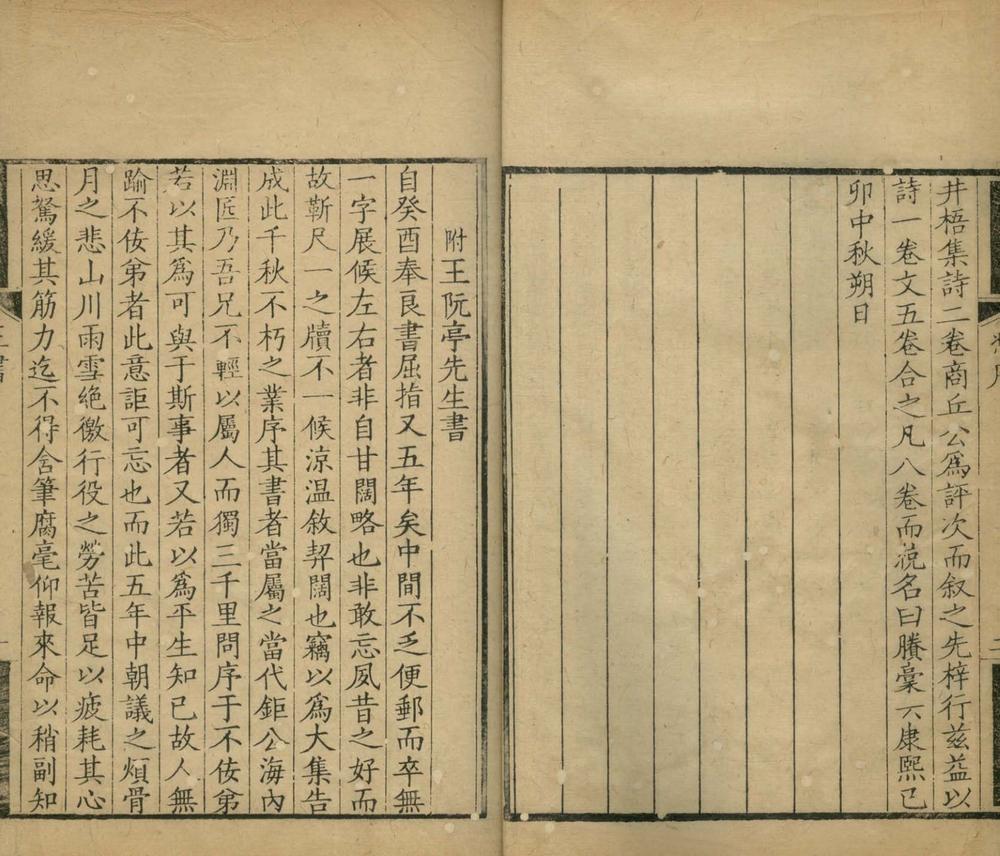 井梧集詩二卷商丘公爲評次而叙之先梓行兹益以
詩一卷文五卷合之凡八卷而總名曰賸稾 康熙己
卯中秋朔日
附王阮亭先生書
自癸酉奉良書屈指又五年矣中間不乏便郵而卒無
一字展候左右者非自甘闊略也非敢忘夙昔之好而
故靳尺一之牘不一候涼温敘契闊也竊以爲大集告
成此千秋不朽之業序其書者當屬之當代鉅公海內
淵匠乃吾兄不輕以屬人而獨三千里問序于不佞弟
若以其爲可與于斯事者又若以爲平生知己故人無
踰不佞弟者此意詎可忘也而此五年中朝議之煩骨
月之悲山川雨雪絶徼行役之勞苦皆足以疲耗其心
思駑緩其筋力迄不得含筆腐毫仰報來命以稍副知